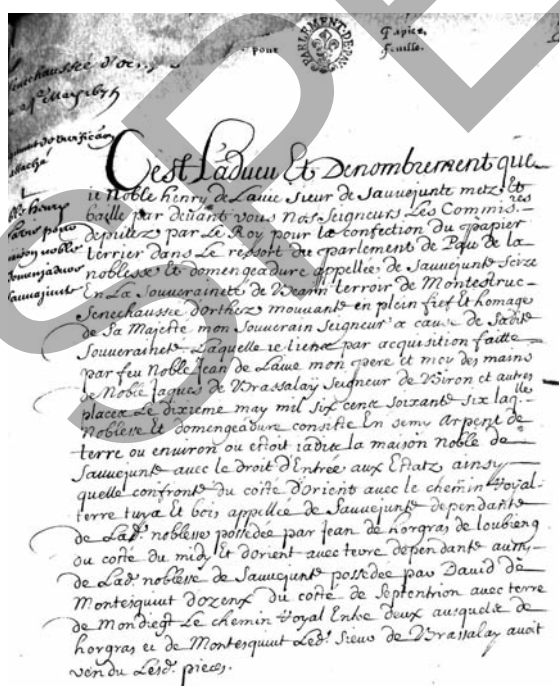 pour
PARLEMENT·DE·PAV
Papier,
feuille.
Senechaussée d'or
May 1675
SPE
C'est L'adveu Et Denombrement que
ie Noble henry de Laur sieur de Sauvejunte metz Et
baille par devant vous Nosseigneurs Les Commis.res
deputez par Le Roy pour la confection du papier
terrier dans Le ressort du parlement de Pau de la
noblesse Et domengeadure appellée de Sauvejunte scize
En La Souveraineté de Bearn terroir de Montestruc
Senechaussée d'orthez mouvante en plein fief et homage
de Sa Majesté mon souverain seigneur a cause de Sadite
Souveraineté Laquelle ie tiens par acquisition faitte
par feu Noble Jean de Laur mon pere et moy des mains
de Noble Jaques de Brassalay seigneur de Biron et autres
places Le dixieme may mil six cens soixante six laq.lle
Noblesse Et domengeadure consiste En demy Arpent de
terre ou environ ou estoit iadis la maison noble de
Sauvejunte avec le droit d'Entrée aux Estatz ainsy
quelle confronte du costé d'orient avec le chemin Royal
terre tuya Et bois appellée de Sauvejunte dependante
de Lad.e noblesse possedée par Jean de horgras de loubieng
du costé du midy Et dorient avec terre dependante aussy
de Lad.e noblesse de Sauvejunte possedée par David de
Montesquiut dozenx du costé de Septentrion avec terre
de Mondiegt Le chemin Royal Entre deux ausquelz de
horgras et de Montesquiut Led.t sieur de Brassalay avoit
vendu Lesd.es pieces.